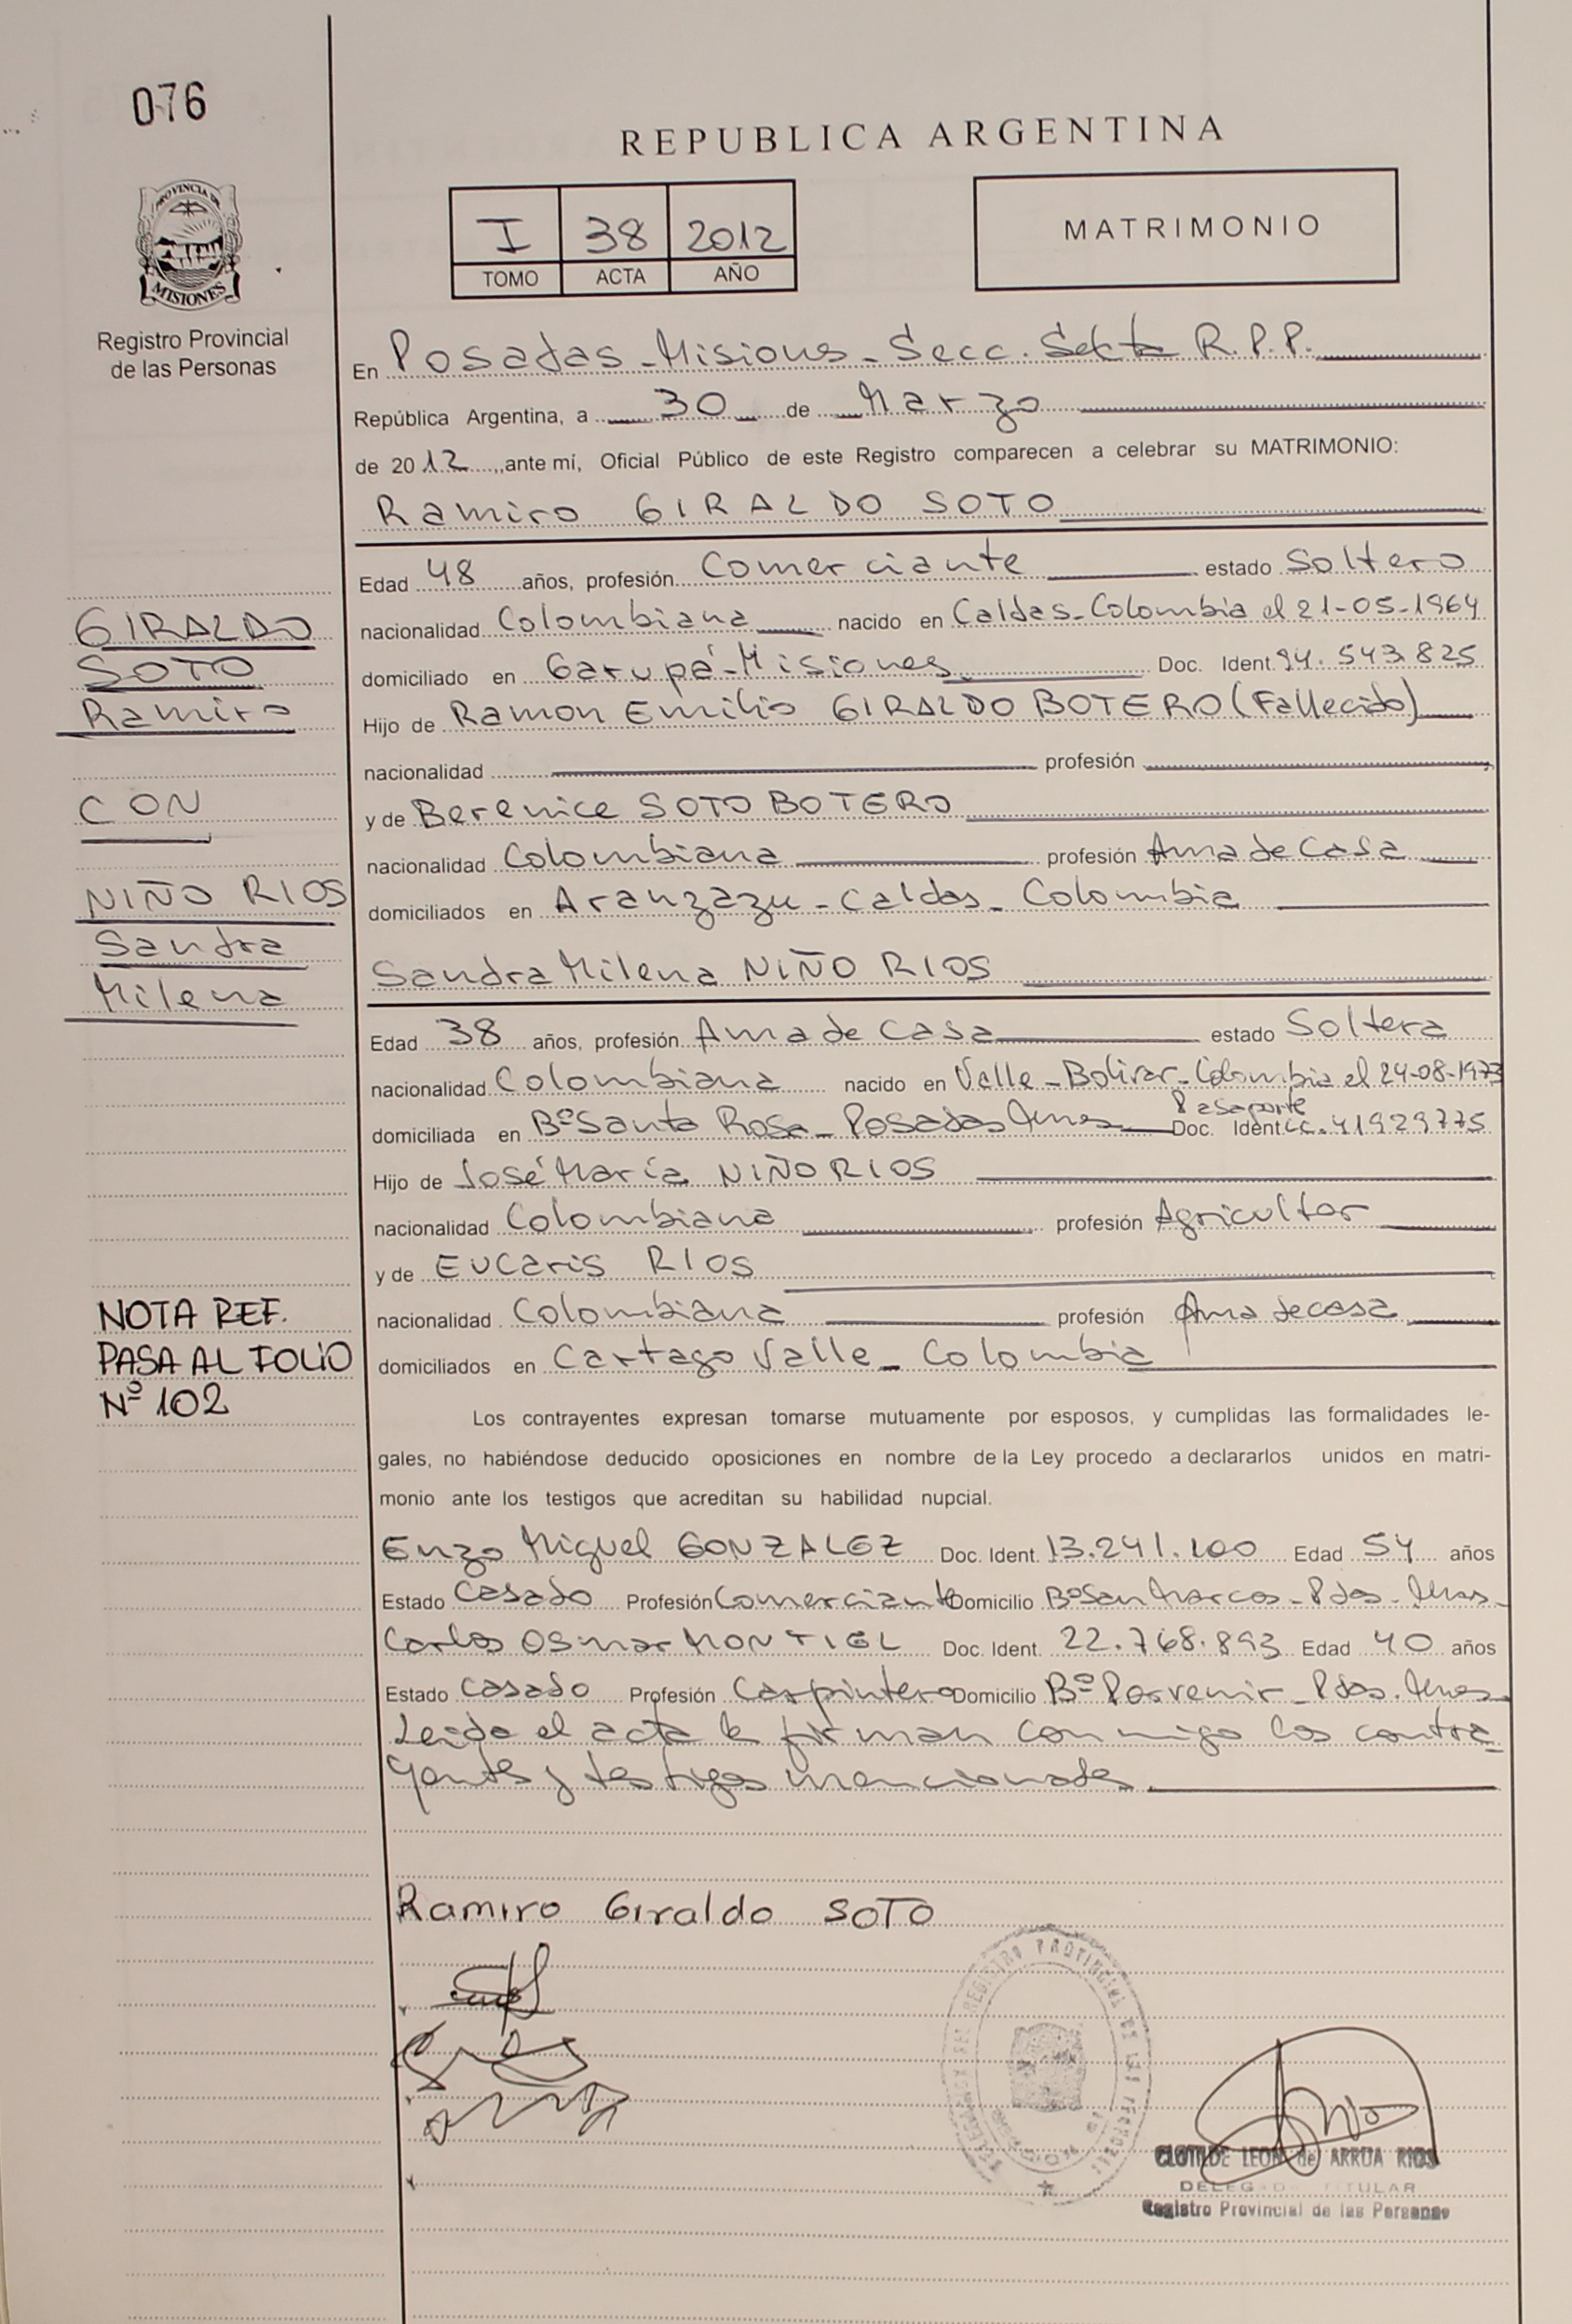 076
REPUBLICA ARGENTINA
PROVINCIA DE
MISIONES
Registro Provincial
de las Personas
I 38 2012
TOMO ACTA AÑO
MATRIMONIO
En Posadas - Misiones - Secc. Sexta R.P.P.
República Argentina, a 30 de Marzo
de 2012, ante mí, Oficial Público de este Registro comparecen a celebrar su MATRIMONIO:
Ramiro GIRALDO SOTO
Edad 48 años, profesión Comerciante estado Soltero
nacionalidad Colombiana nacido en Caldas - Colombia el 21-05-1964
domiciliado en Garupá - Misiones Doc. Ident. 94.543.825
Hijo de Ramon Emilio GIRALDO BOTERO (Fallecido)
nacionalidad profesión
y de Berenice SOTO BOTERO
nacionalidad Colombiana profesión Ama de Casa
domiciliados en Aranzazu - Caldas - Colombia
Sandra Milena NIÑO RIOS
Edad 38 años, profesión Ama de Casa estado Soltera
nacionalidad Colombiana nacido en Valle - Bolivar - Colombia el 24-08-1973
Pasaporte
domiciliada en Bº Santa Rosa - Posadas Mnes Doc. Ident. CC. 41929775
Hijo de José María NIÑO RIOS
nacionalidad Colombiana profesión Agricultor
y de Eucaris RIOS
nacionalidad Colombiana profesión Ama de casa
domiciliados en Cartago Valle - Colombia
Los contrayentes expresan tomarse mutuamente por esposos, y cumplidas las formalidades le-
gales, no habiéndose deducido oposiciones en nombre de la Ley procedo a declararlos unidos en matri-
monio ante los testigos que acreditan su habilidad nupcial.
Enzo Miguel GONZALEZ Doc. Ident. 13.241.100 Edad 54 años
Estado Casado Profesión Comerciante Domicilio Bº San Marcos - Pdas - Mnes -
Carlos Osmar MONTIEL Doc. Ident. 22.768.893 Edad 40 años
Estado Casado Profesión Carpintero Domicilio Bº Porvenir - Pdas. Mnes
Leida el acta la firman conmigo los contra-
yentes y testigos mencionados
GIRALDO
SOTO
Ramiro
CON
NIÑO RIOS
Sandra
Milena
NOTA REF.
PASA AL FOLIO
Nº 102
Ramiro Giraldo SOTO
REGISTRO PROVINCIAL DE LAS PERSONAS
CLOTILDE LEON de ARRUA RIOS
DELEGADA TITULAR
Registro Provincial de las Personas